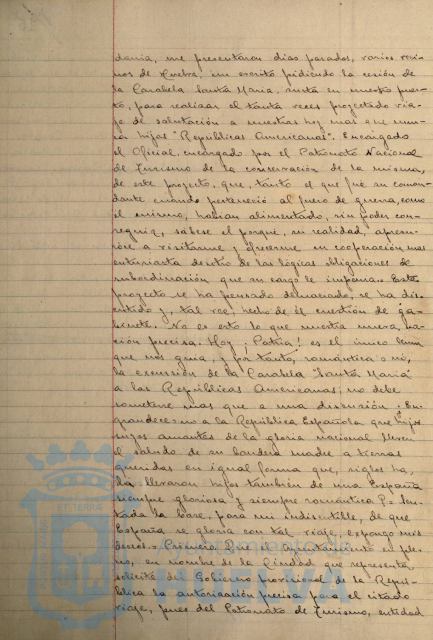 danía, me presentaron días pasados, varios veci-
nos de Huelva, un escrito pidiendo la cesión de
la Carabela Santa María, surta en nuestro puer-
to, para realizar el tanta veces proyectado via-
je de salutación a nuestras hoy mas que nun-
ca hijas "Repúblicas Americanas". Encargado
el Oficial, encargado por el Patronato Nacional
de Turismo de la conservación de la misma,
de este proyecto, que, tanto el que fué su coman-
dante cuando perteneció al fuero de guerra, como
el mismo, habían alimentado, sin poder con-
seguir, sábese el porque, su realidad, apresu-
róse a visitarme y ofrecerme su cooperación mas
entusiasta dentro de las lógicas obligaciones de
subordinación que su cargo le impone. Este
proyecto se ha pensado demasiado, se ha dis-
cutido y, tal vez, hecho de él cuestión de ga-
binete. No es esto lo que nuestra nueva na-
ción precisa. Hoy ¡Patria! es el único lema
que nos guia, y por tanto, romántica o nó,
la excursión de la Carabela "Santa María"
a las Repúblicas Americanas; no debe
someterse mas que a una discusión ¿En-
grandecemos a la República Española que hijos
suyos amantes de la gloria nacional lleven
el saludo de su bandera madre a tierras
queridas en igual forma que, siglos ha,
la llevaron hijos también de una España
siempre gloriosa y siempre romántica? = Sen-
tada la base, para mí indiscutible, de que
España se gloria con tal viaje, expongo mis
deseos. = Primero. Que el Ayuntamiento en ple-
no, en nombre de la Ciudad que representa,
solicite del Gobierno provisional de la Repú-
blica la autorización precisa para el citado
viaje, pues del Patronato de Turismo, entidad
AYUNTAMIENTO DE
HUELVA